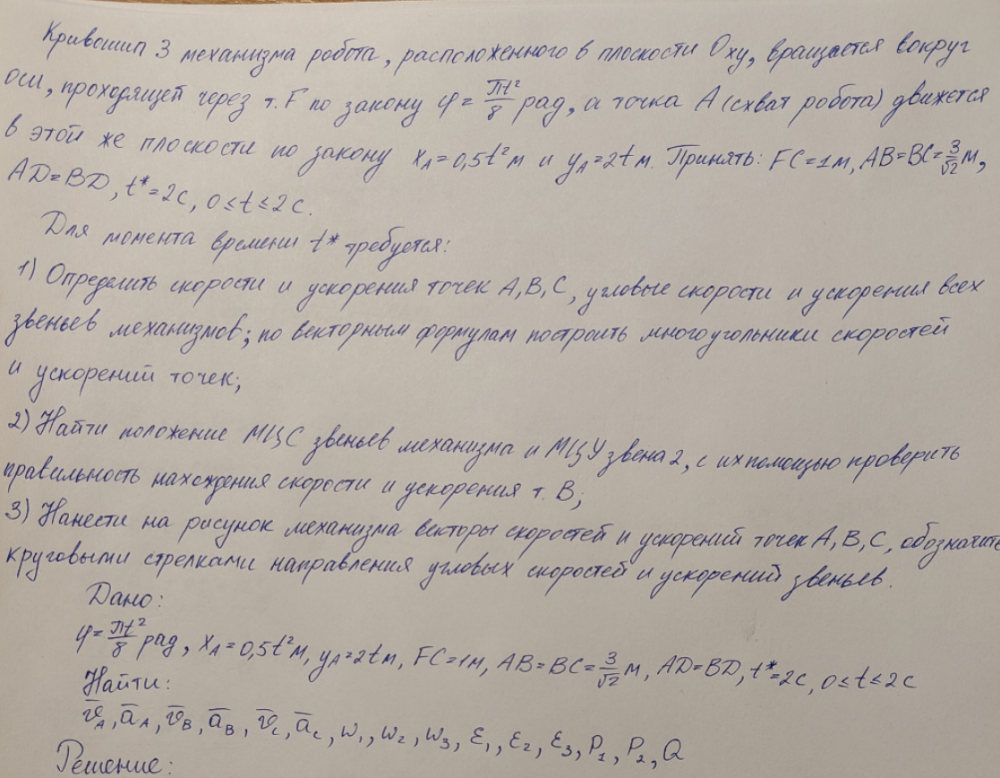 Кривошип 3 механизма робота, расположенного в плоскости Oxy, вращается вокруг
оси, проходящей через т. F по закону φ = πt²/8 рад, а точка A (схват робота) движется
в этой же плоскости по закону x_A = 0,5t² м и y_A = 2t м. Принять: FC = 1 м, AB = BC = 3/√2 м,
AD = BD, t* = 2с, 0 ≤ t ≤ 2с.
Для момента времени t* требуется:
1) Определить скорости и ускорения точек A, B, C, угловые скорости и ускорения всех
звеньев механизмов; по векторным формулам построить многоугольники скоростей
и ускорений точек;
2) Найти положение МЦС звеньев механизма и МЦУ звена 2, с их помощью проверить
правильность нахождения скорости и ускорения т. B;
3) Нанести на рисунок механизма векторы скоростей и ускорений точек A, B, C, обозначить
круговыми стрелками направления угловых скоростей и ускорений звеньев.
Дано:
φ = πt²/8 рад, x_A = 0,5t² м, y_A = 2t м, FC = 1 м, AB = BC = 3/√2 м, AD = BD, t* = 2с, 0 ≤ t ≤ 2с
Найти:
v̄_A, ā_A, v̄_B, ā_B, v̄_C, ā_C, ω₁, ω₂, ω₃, ε₁, ε₂, ε₃, P₁, P₂, Q
Решение: